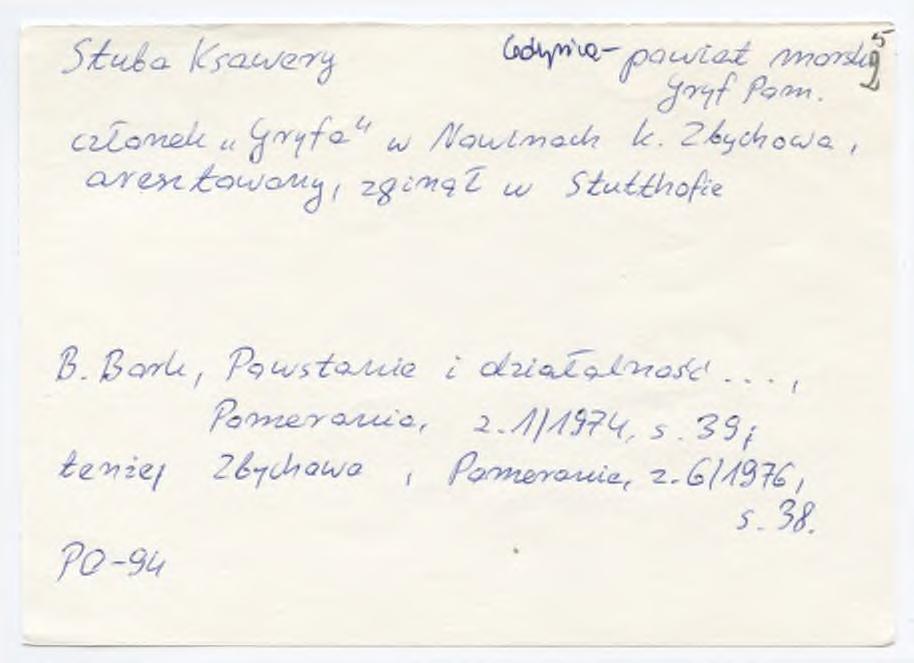 Stuba Ksawery Gdynia - powiat morski
5
2
Gryf Pom.
członek „Gryfa" w Nowinach k. Zbychowa,
aresztowany, zginął w Stutthofie
B. Bork, Powstanie i działalność ...,
Pomerania, z.1/1974, s. 39;
tenżej Zbychowo, Pomerania, z.6/1976,
s. 38.
PO-94